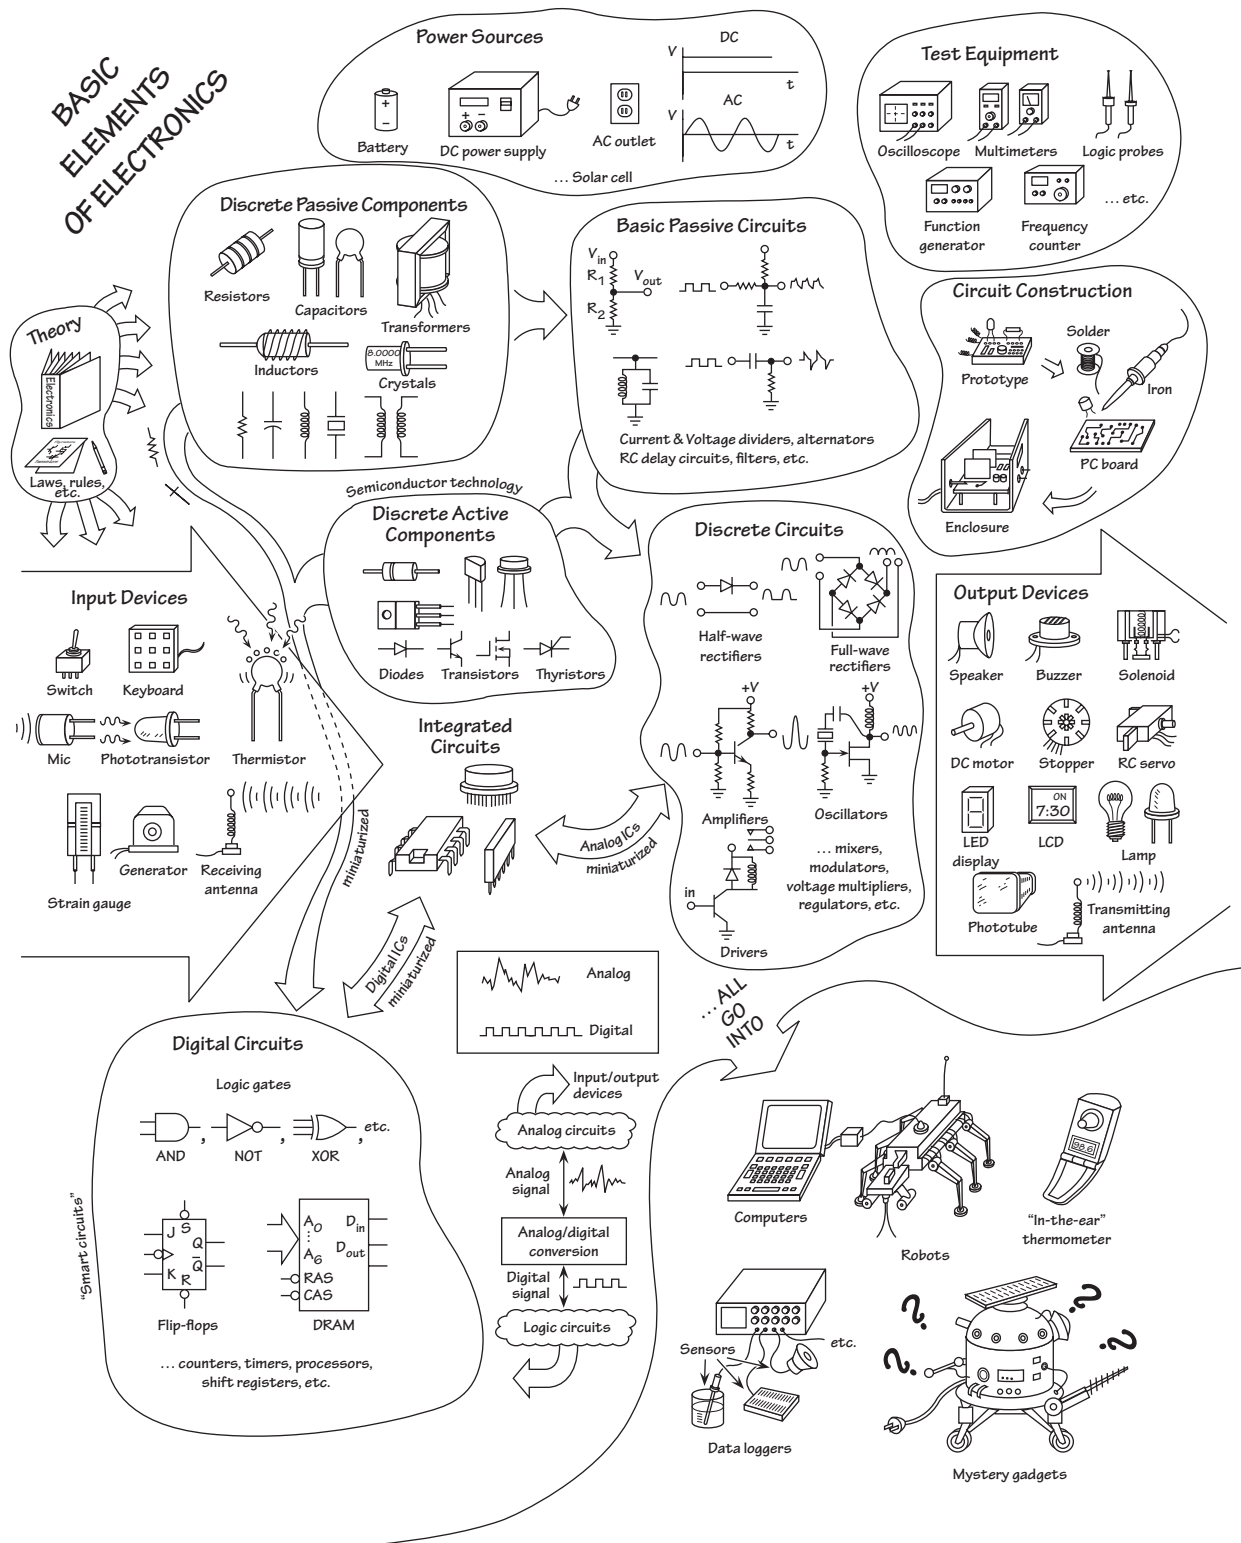 BASIC
ELEMENTS
OF ELECTRONICS
Power Sources
Battery
+
−
DC power supply
+ −
AC outlet
DC
V
t
AC
V
t
... Solar cell
Test Equipment
Oscilloscope
Multimeters
Logic probes
Function
generator
Frequency
counter
... etc.
Discrete Passive Components
Resistors
Capacitors
Transformers
Inductors
8.0000
MHz
Crystals
Basic Passive Circuits
Vin
R1
Vout
R2
Current & Voltage dividers, alternators
RC delay circuits, filters, etc.
Circuit Construction
Prototype
Solder
Iron
PC board
Enclosure
Theory
Electronics
Laws, rules,
etc.
Semiconductor technology
Discrete Active
Components
Diodes
Transistors
Thyristors
Discrete Circuits
Half-wave
rectifiers
Full-wave
rectifiers
+V
+V
Amplifiers
Oscillators
in
Drivers
... mixers,
modulators,
voltage multipliers,
regulators, etc.
Input Devices
Switch
Keyboard
Mic
Phototransistor
Thermistor
Strain gauge
Generator
Receiving
antenna
Integrated
Circuits
miniaturized
Analog ICs
miniaturized
Digital ICs
miniaturized
Output Devices
Speaker
Buzzer
Solenoid
DC motor
Stopper
RC servo
LED
display
ON
7:30
LCD
Lamp
Phototube
Transmitting
antenna
Analog
Digital
... ALL
GO
INTO
Digital Circuits
Logic gates
, , , etc.
AND
NOT
XOR
"Smart circuits"
J S
Q
K R
Q̅
Flip-flops
A0
⋮
A6
RAS
CAS
Din
Dout
DRAM
... counters, timers, processors,
shift registers, etc.
Input/output
devices
Analog circuits
Analog
signal
Analog/digital
conversion
Digital
signal
Logic circuits
Computers
Robots
"In-the-ear"
thermometer
Sensors
etc.
Data loggers
? ? ? ?
Mystery gadgets